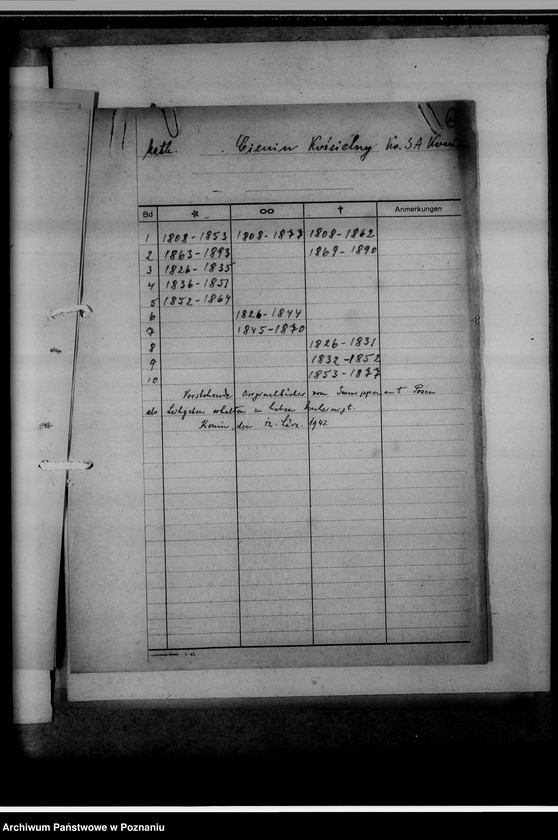 6
kath. Ciemin Kościelny Kr. S.A Konin
Bd * ∞ † Anmerkungen
1 1808-1853 1808-1877 1808-1862
2 1863-1893 1869-1890
3 1826-1835
4 1836-1851
5 1852-1864
6 1826-1844
7 1845-1870
8 1826-1831
9 1832-1852
10 1853-1877
Vorstehende Originalbücher vom amt Posen
als erhalten zu haben bescheinigt.
Konin, den 12. 1942.
Archiwum Państwowe w Poznaniu